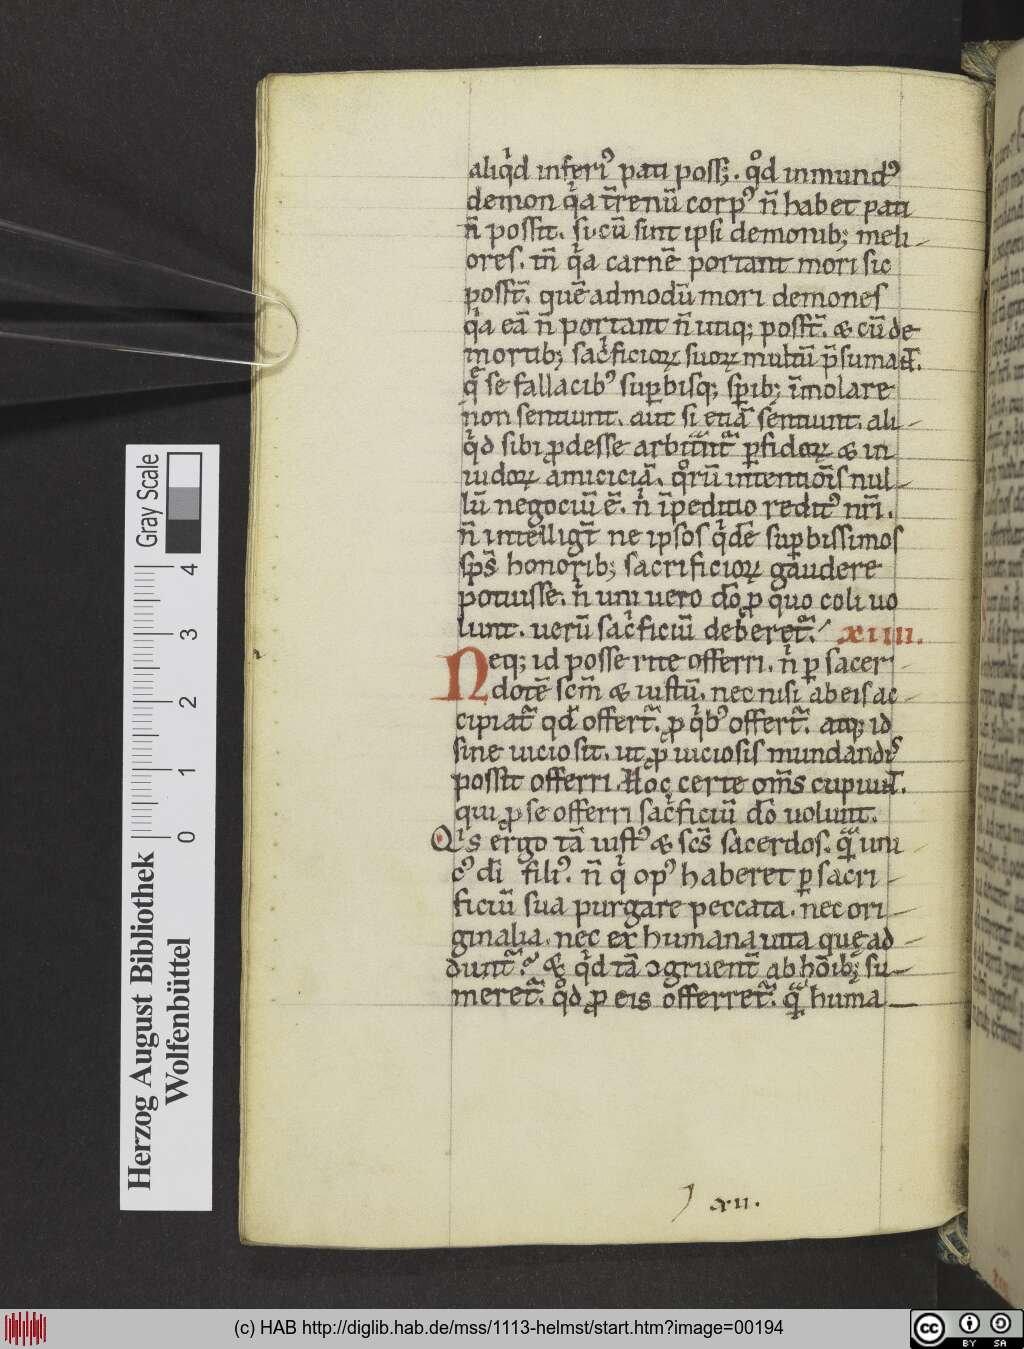 aliq̇d inferi᷒ pati poss&; . qͦd inmund᷒
demon q̇a t̄renū corp᷒ n̄ habet pati
n̄ possit. si cū sint ipsi demonib; meli-
ores. in̄ q̇a carnē portant mori sic
posst̄. quēadmodū mori demones
q̇a eā n̄ portant n̄ utiq; possт̄. & cū de
mortib; sac̍ficioꝝ suoꝝ multū p̄sumat̄.
q̄ se fallacib᷒ suꝑbisq; sp̄ib; īmolare
non sentiunt. aut si etiā sentiunt. ali-
q̇d sibi ꝓdesse arbitn̄t̄ ꝑfidoꝝ & in
uidoꝝ amiciciā. qͦrū intentiōis nul-
lū negociū ē. n̍ īpeditio redit᷒ nr̄i.
n̄ intelligt̄ ne ipsos q̇dē suꝑbissimos
sp̄s honorib; sacrificioꝝ gaudere
potuisse. n̍ uni uero dō ꝓ quo coli uo
lunt. uerū sac̍ficiū deberet᷑. xiiii.
Neq; id posse rite offerri. n̍ ꝑ sacer-
dotē sc̄m & iustū. nec nisi ab eis ac-
cipiat᷑ qd̄ offert᷑. ꝓ q̇b᷒ offert᷑. atq; id
sine uicio sit. ut ꝓ uiciosis mundandis
possit offerri. Hoc certe om̄s cupiunt̄.
qui ꝓ se offerri sac̍ficiū dō uolunt.
Q̍s ergo tā iust᷒ & sc̄s sacerdos. q̄ uni
c᷒ dī fili᷒. n̄ q̍ op᷒ haberet ꝑ sacri-
ficiū sua purgare peccata. nec ori-
ginalia. nec ex humana uita quę ad-
dunt᷑. & q̇d tā ꝯgruent̄ ab hōib; su-
meret᷑. qͦd ꝓ eis offerret᷑. q̄ huma-
xii.
Gray Scale
4 3 2 1 0
Herzog August Bibliothek
Wolfenbüttel
(c) HAB http://diglib.hab.de/mss/1113-helmst/start.htm?image=00194
cc BY SA